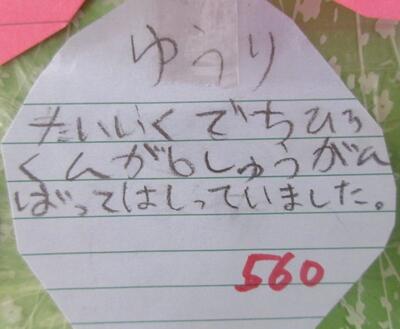 ゆうり
たいいくでちひろ
くんが6しゅうがん
ばってはしっていました。
560